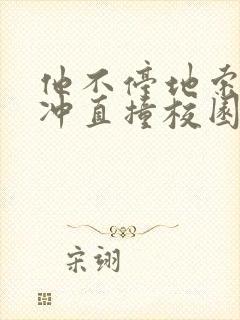 他不停地索
冲直撞校园
宋翊